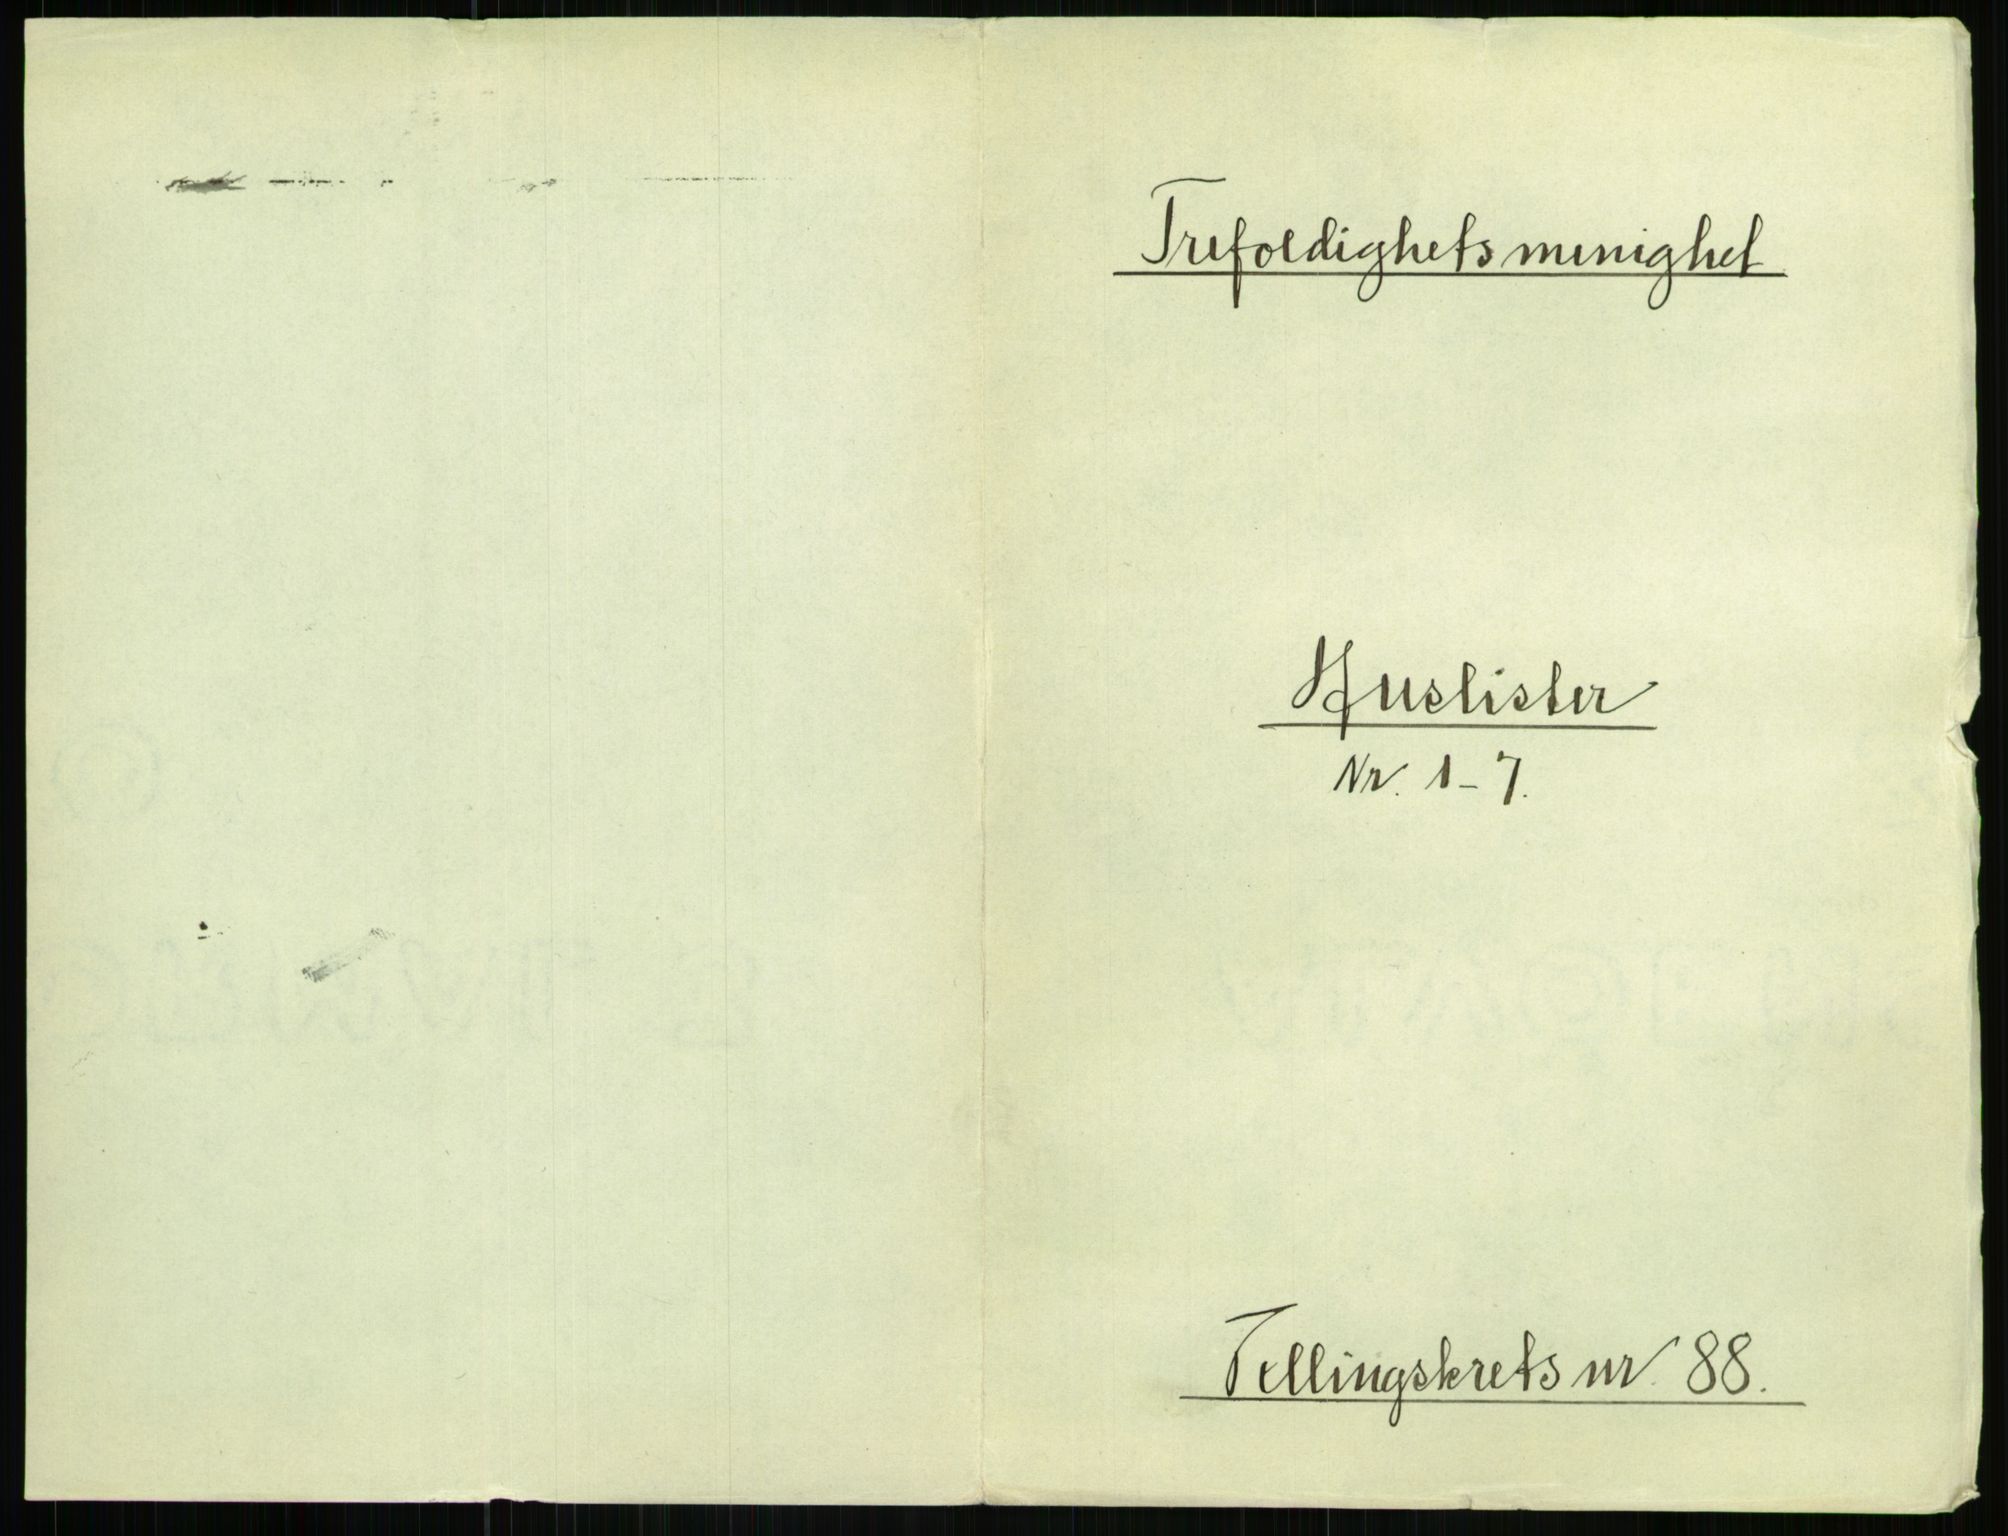 Trefoldighetsmenighet
Huslister
Nr. 1-7.
Tellingskrets nr. 88.